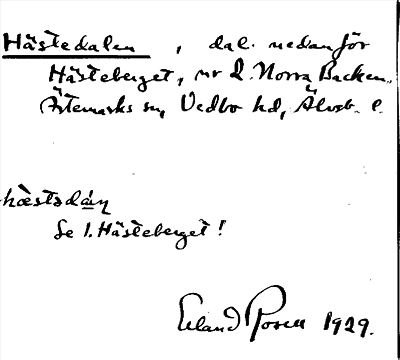 Hästedalen, dal nedanför
Hästeberget, nr 2. Norra Backen,
Ärtemarks sn, Vedbo hd, Älvsb. l.
hæstədáṇ
Se 1. Hästeberget!
Erland Rosell 1929.